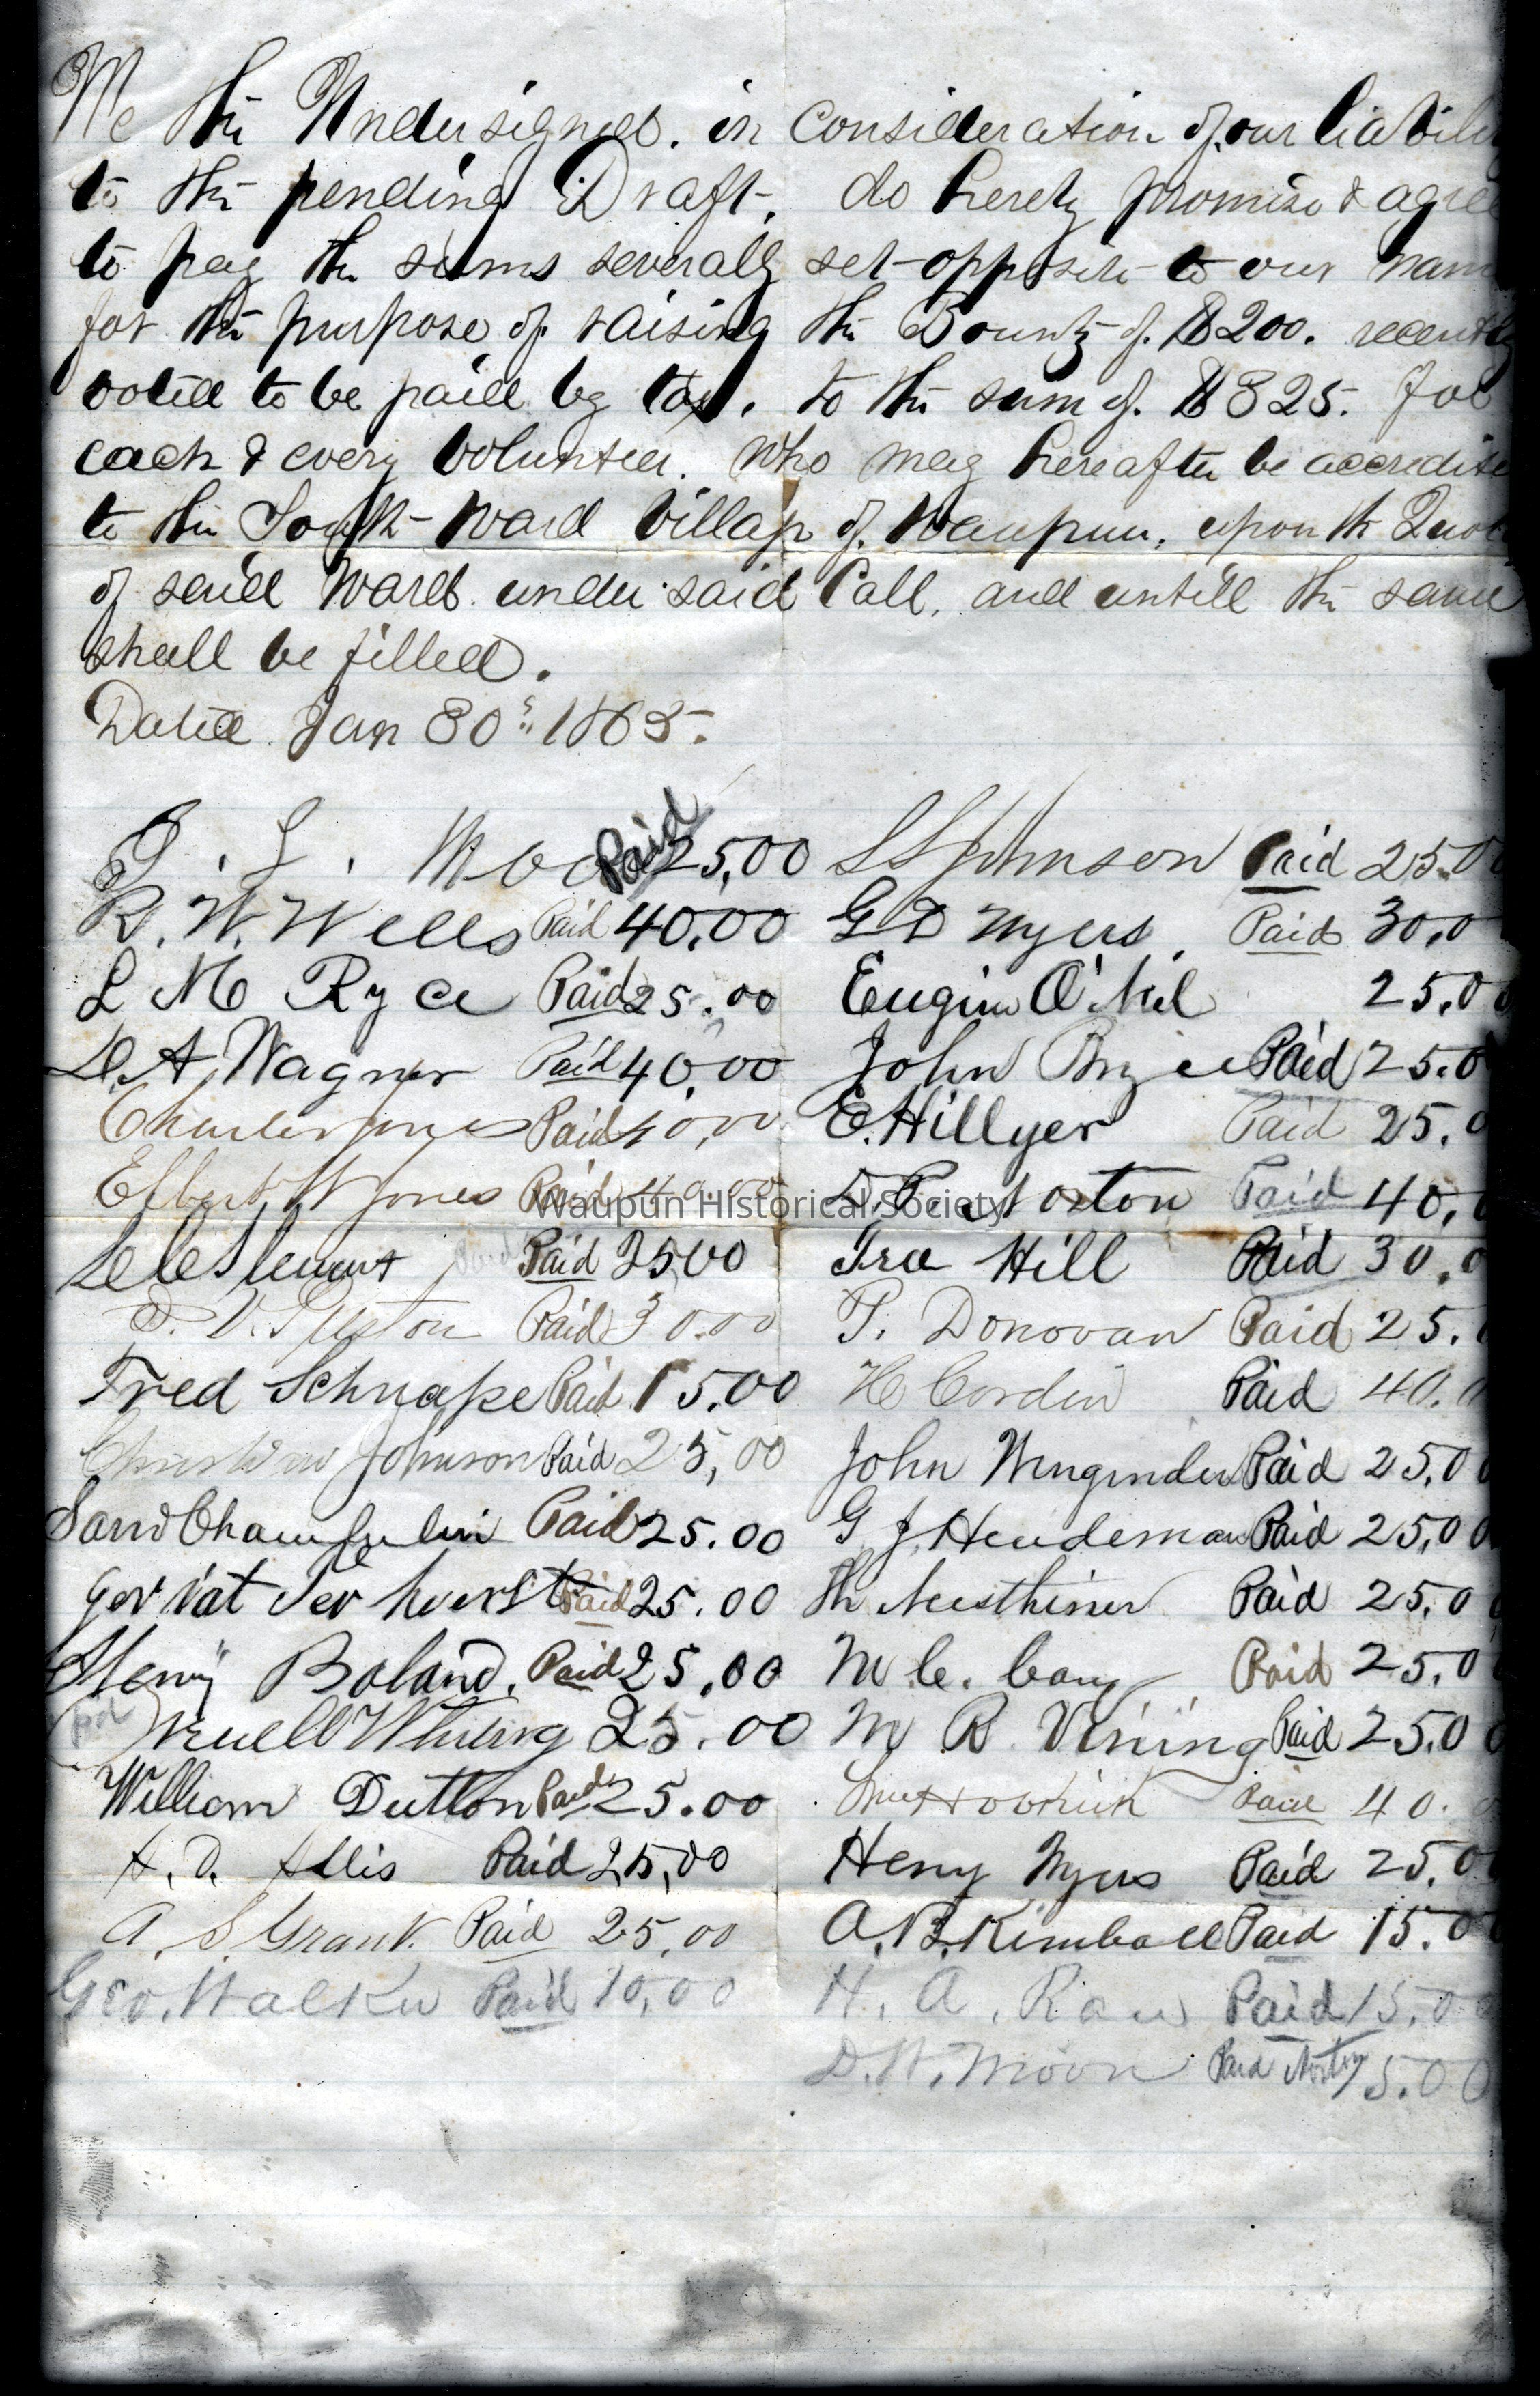 We the Undersigned. in consideration of our liability
to the pending Draft, do hereby promise & agree
to pay the sums severally set opposite to our nam
for the purpose of raising the Bounty of $200. recently
voted to be paid by tax, to the sum of $325. for
each & every volunteer. who may hereafter be accredite
to the South Ward Village of Waupun, upon the Quot
of said Ward under said Call, and untill the same
shall be filled.
Dated Jan 30th 1865.
Paid 25,00 S S Johnson Paid 25.0
R. W. Wells Paid 40,00 G D Myers Paid 30,0
L M Ryce Paid 25.00 Eugine O'Niel 25.0
A Wagner Paid 40,00 John Bryce Paid 25.0
Charles Jones Paid 40,00 E. Hillyer Paid 25.0
Elbert W Jones Paid 40.00 D. P. Norton Paid 40,0
Paid 2500 Ira Hill Paid 30.0
Paid 30.00 P. Donovan Paid 25.0
Fred Schnaske Paid 15,00 H Cordin Paid 40.0
Christian Johnson Paid 25,00 John Wingender Paid 25,00
Saml Chamberlin Paid 25.00 G J Hendeman Paid 25,00
Gerrat Ter horst Paid 25.00 Paid 25,0
Henry Boland. Paid 25,00 M C. Paid 25,0
pd Newell Whiting 25.00 M R Vining Paid 25.0
William Dutton Paid 25.00 Paid 40.0
A. D. Allis Paid 25,00 Henry Myers Paid 25,0
A. S. Grant. Paid 25,00 A. B. Kimball Paid 15.0
Geo. Walker Paid 10,00 H. A. Rau Paid 15.0
D. H. Moon Paid 5.00
Waupun Historical Society